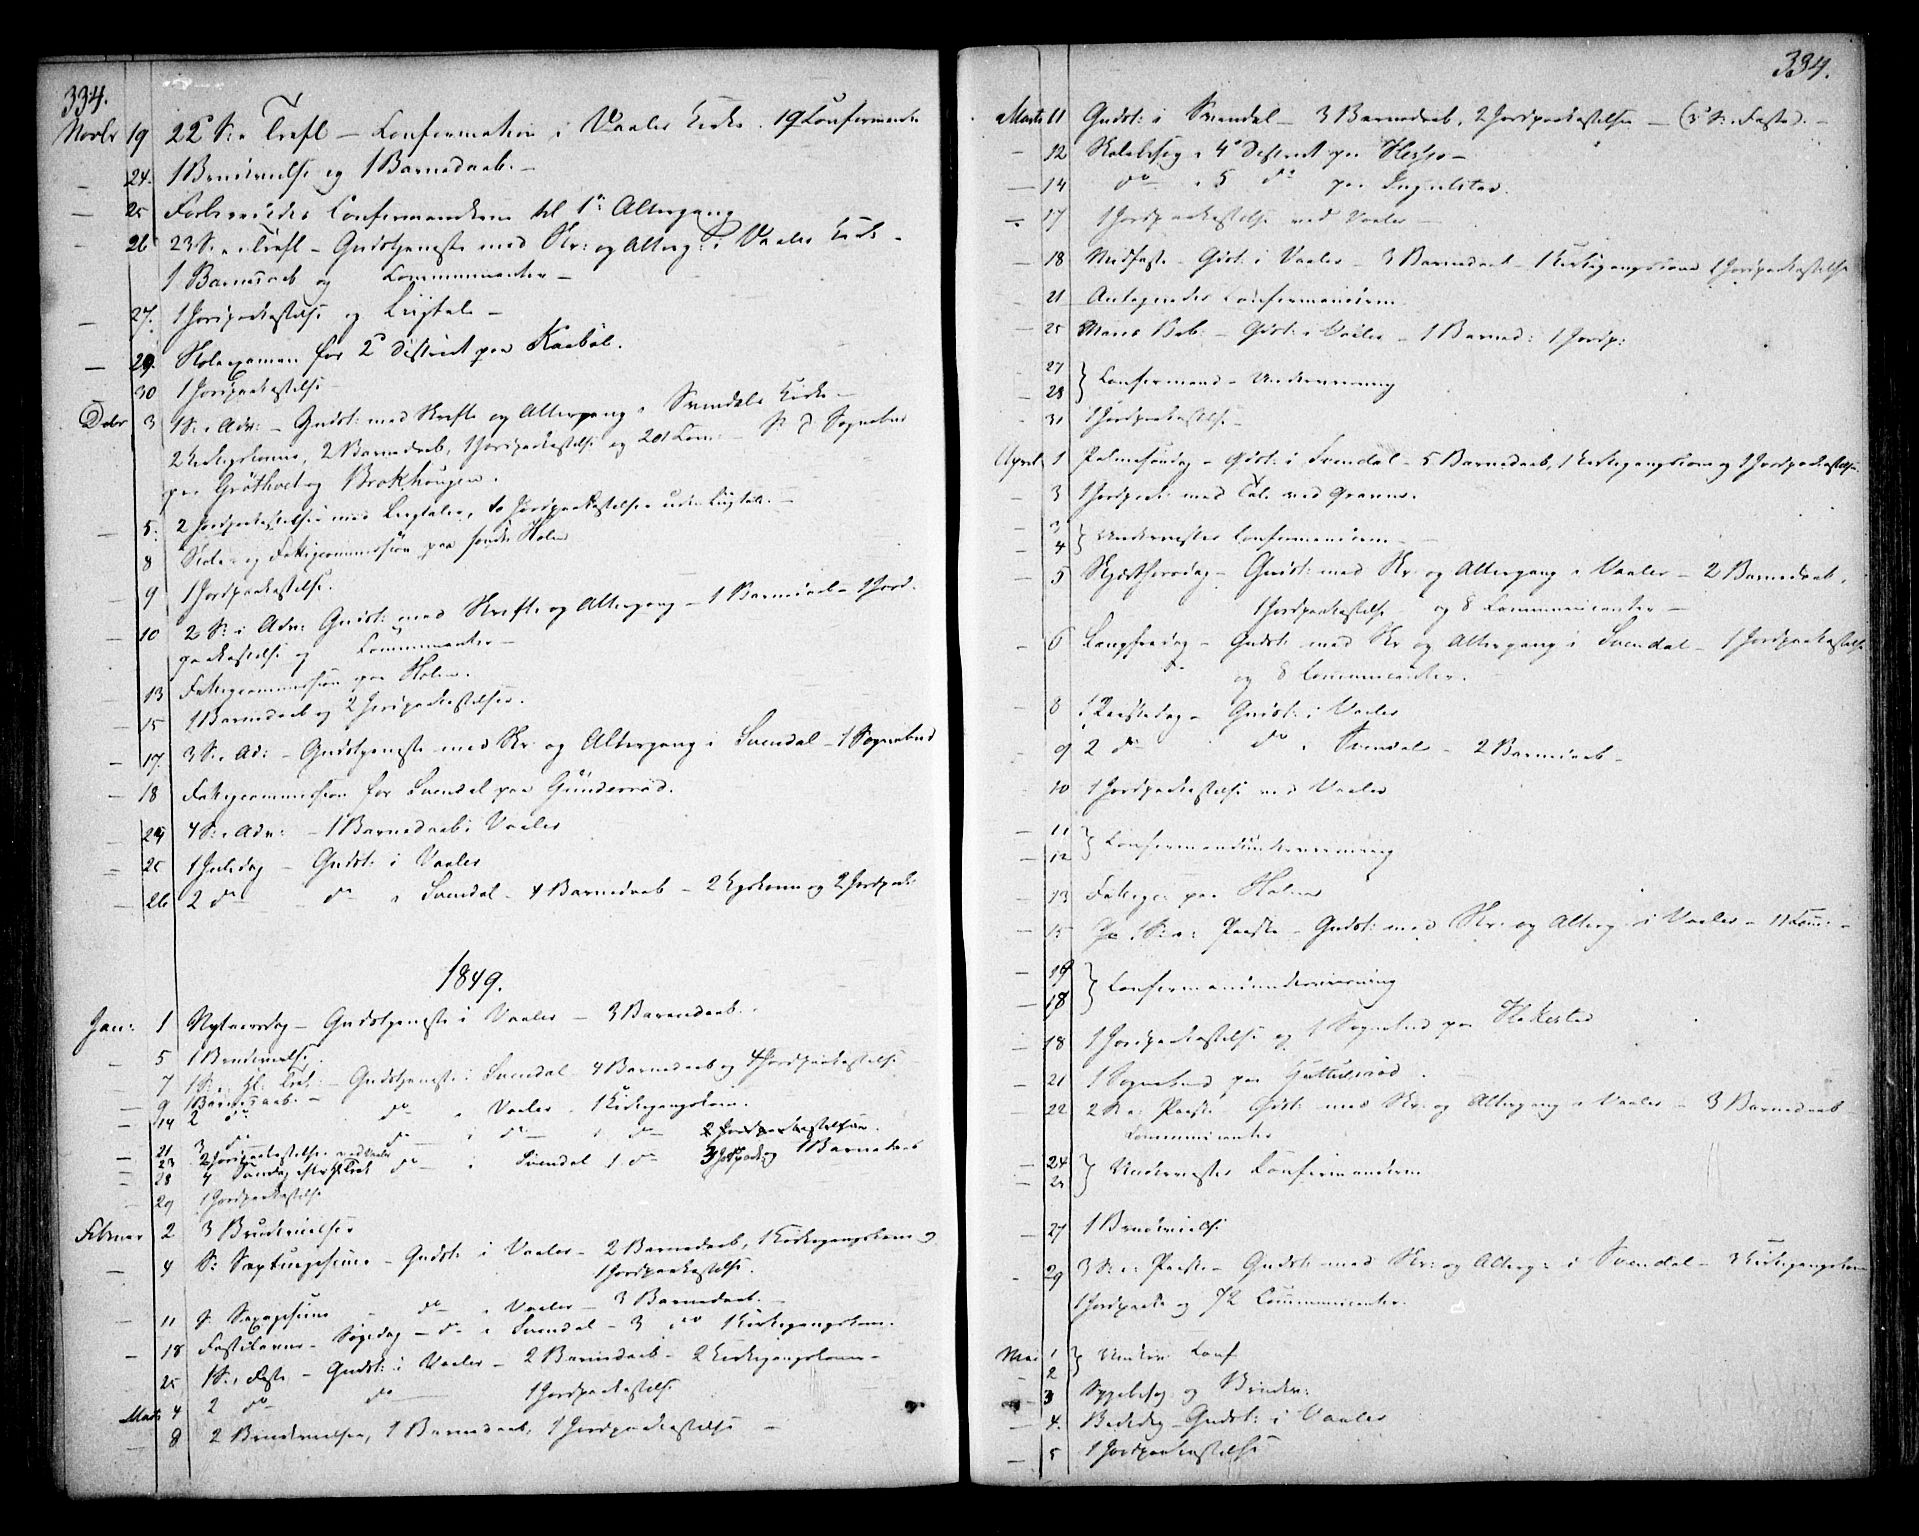 334.
Novbr 19 22de S: e Trefl – Confirmation i Vaaler Kirke. 19 Confirmerede
24. 1 Brudevielse og 1 Barnedaab. –
25 Forberededes Confirmanderne til 1ste Altergang
26 23 S. e. Trefl – Gudstjeneste med Skr: og Alterg: i Vaaler Kirke –
1 Barnedaab og Communicanter –
27. 1 Jordpaakastelse og Liigtale –
29. Skoleexamen for 2det District paa Kaabøl.
30 1 Jordpaakastelse –
Debr 3 1 S. i Adv: – Gudst: med Skrifte og Altergang i Svendals Kirke –
2 Kirkegskoner, 2 Barnedaab, 1 Jordpaakastelse og 20 Com: – Sognebud
paa Grøthvet og Brokhougen.
5. 2 Jordpaakastelser med Liigtaler, Jordpaakastelse uden Liigtale. –
8 Skole- og Fattigcommission paa Holm
9 1 Jordpaakastelse.
10 2 S: i Adv: Gudst: med Skrifte og Altergang – 1 Barnedaab – 1 Jord-
paakastelse og Communicanter –
13 Fattigcommission paa Holm.
15 1 Barnedaab og 2 Jordpaakastelser.
17 3 S. i Ad: – Gudstjeneste med Skr: og Altergang i Svendal – 1 Sognebud
18 Fattigcommission for Svendal paa Gunderød.
24 4 S. i Adv: – 1 Barnedaab i Vaaler
25 1 Juledag – Gudst: i Vaaler
26 2 do – do i Svendal – 4 Barnedaab – 2 Kgskoner og 2 Jordpaak:
1849.
Jan: 1 Nytaarsdag – Gudstjeneste i Vaaler – 3 Barnedaab.
5 1 Brudevielse.
7 1 S. e. Hl: Tref: – Gudstjeneste i Svendal – 4 Barnedaab og 4 Jordpaakastelse
9 1 Barnedaab. –
14 2 do do i Vaaler – 1 Kirkegangskone.
21 3 do do i do 1 do 2 Jordpaakastelser.
23 2 Jordpaakastelser ved Vaaler
28 4 Søndag efter Hl Tref do i Svendal 1 do 3 Jordpaak og 1 Barnedaab
29 1 Jordpaakastelse
Februar 2 3 Brudevielser
4 S: Septuagesima – Gudst: i Vaaler – 2 Barnedaab, 1 Kirkegangskone og
1 Jordpaakastelse.
11 S. Sexagesima – do i Vaaler – 3 Barnedaab. –
18 Fastelavns-Søndag – do i Svendal – 3 do 1 Kirkegangskone.
25 1 S. i Faste – Gudst: i Vaaler – 2 Barnedaab – 2 Kirkegangskoner –
Marts 4 2 do do 1 Jordpaakastelse
8 2 Brudevielser, 1 Barnedaab, 1 Jordpaakastelse –
334.
Marts 11 Gudst: i Svendal – 3 Barnedaab, 2 Jordpaakastelse – (3 S. i Faste). –
12 Skolebesøg i 4de District paa
14 do i 5 do paa Ingulstad.
17 1 Jordpaakastelse ved Vaaler –
18 Midfaste – Gudst: i Vaaler – 3 Barnedaab – 1 Kirkegangskone 1 Jordpaakastelse
21 Antegnedes Confirmanderne
25 Mariæ Beb: – Gudst. i Vaaler – 1 Barned: 1 Jordp:
27
28 } Confirmand-Underviisning
31 1 Jordpaakastelse –
April 1 Palmesøndag – Gudst: i Svendal – 5 Barnedaab, 1 Kirkegangskone og 1 Jordpaakastelse
3 1 Jordpaak: med Tale ved Graven.
3
4 } Undervistes Confirmanderne –
5 Skjærthorsdag – Gudst: med Skr: og Altergang i Vaaler – 2 Barnedaab,
1 Jordpaakastelse og 8 Communicanter –
6 Langfredag – Gudst: med Skr og Altergang i Svendal – 1 Jordpaakastelse
og 8 Communicanter.
8 1 Paaskedag – Gudst: i Vaaler
9 2 do do i Svendal – 2 Barnedaab –
10 1 Jordpaakastelse ved Vaaler
11
12 } Confirmandunderviisning
13 Fattigc: paa Holm
15 1 S: e: Paaske – Gudst: med Skr: og Alterg: i Vaaler – 11 Com: –
19
18 } Confirmandunderviisning
18 1 Jordpaakastelse og 1 Sognebud paa Hakestad
21 1 Sognebud paa Guttulsrød.
22 2 S. e: Paaske Gudst: med Skr: og Altergang i Vaaler – 3 Barnedaab
Communicanter
24
25 } Undervistes Confirmanderne
27 1 Brudevielse
29 3 S: e: Paaske – Gudst: med Skr: og Alterg: i Svendal – 3 Kirkegangskoner
1 Jordpaak og 72 Communicanter.
Mai 1
2 } Underv: Conf
3 Sygebesøg og Brudev:
4. Bededag – Gudst: i Vaaler
5 1 Jordpaakastelse